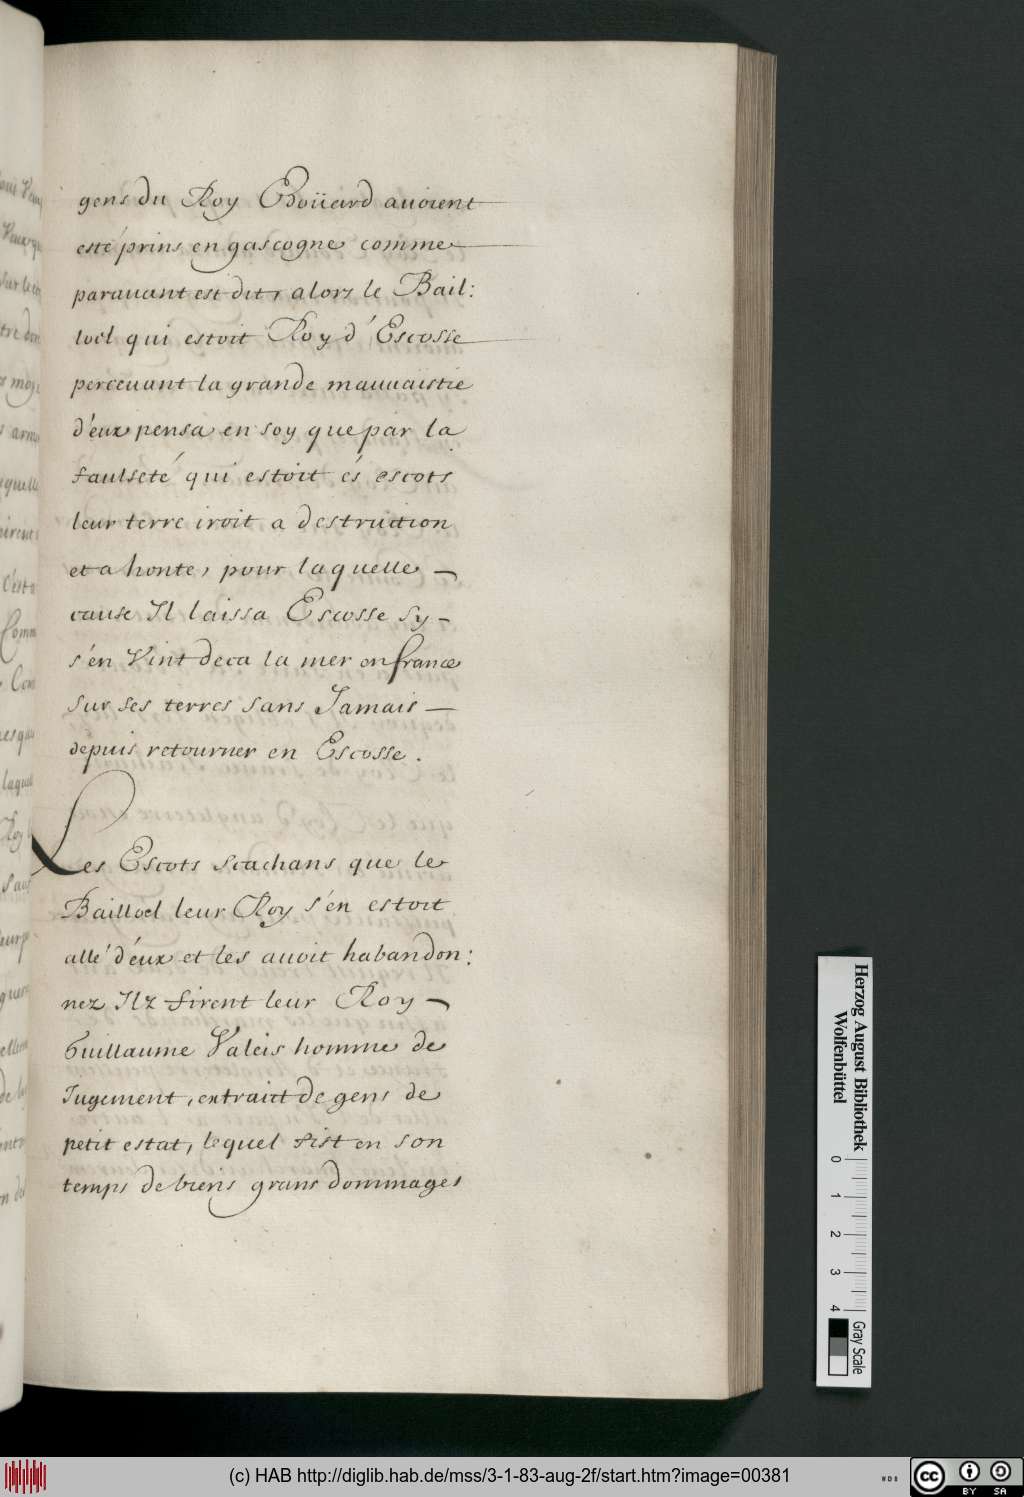 gens du Roy Edoüard auoient
esté prins en gascogne comme
parauant est dit, alors le Bail:
loël qui estoit Roy d'Escosse
perceuant la grande mauuaistie
d'eux pensa en soy que par la
faulseté qui estoit és escots
leur terre iroit a destruction
et a honte, pour laquelle
cause Il laissa Escosse sy
s'en Vint deca la mer en france
sur ses terres sans Jamais
depuis retourner en Escosse.
Les Escots scachans que le
Bailloel leur Roy s'en estoit
allé d'eux et les auoit habandon:
nez Ilz firent leur Roy
Guillaume Valeis homme de
Jugement, extraict de gens de
petit estat, lequel fist en son
temps de biens grans dommages
Herzog August Bibliothek
Wolfenbüttel
0 1 2 3 4
Gray Scale
(c) HAB http://diglib.hab.de/mss/3-1-83-aug-2f/start.htm?image=00381
cc BY SA